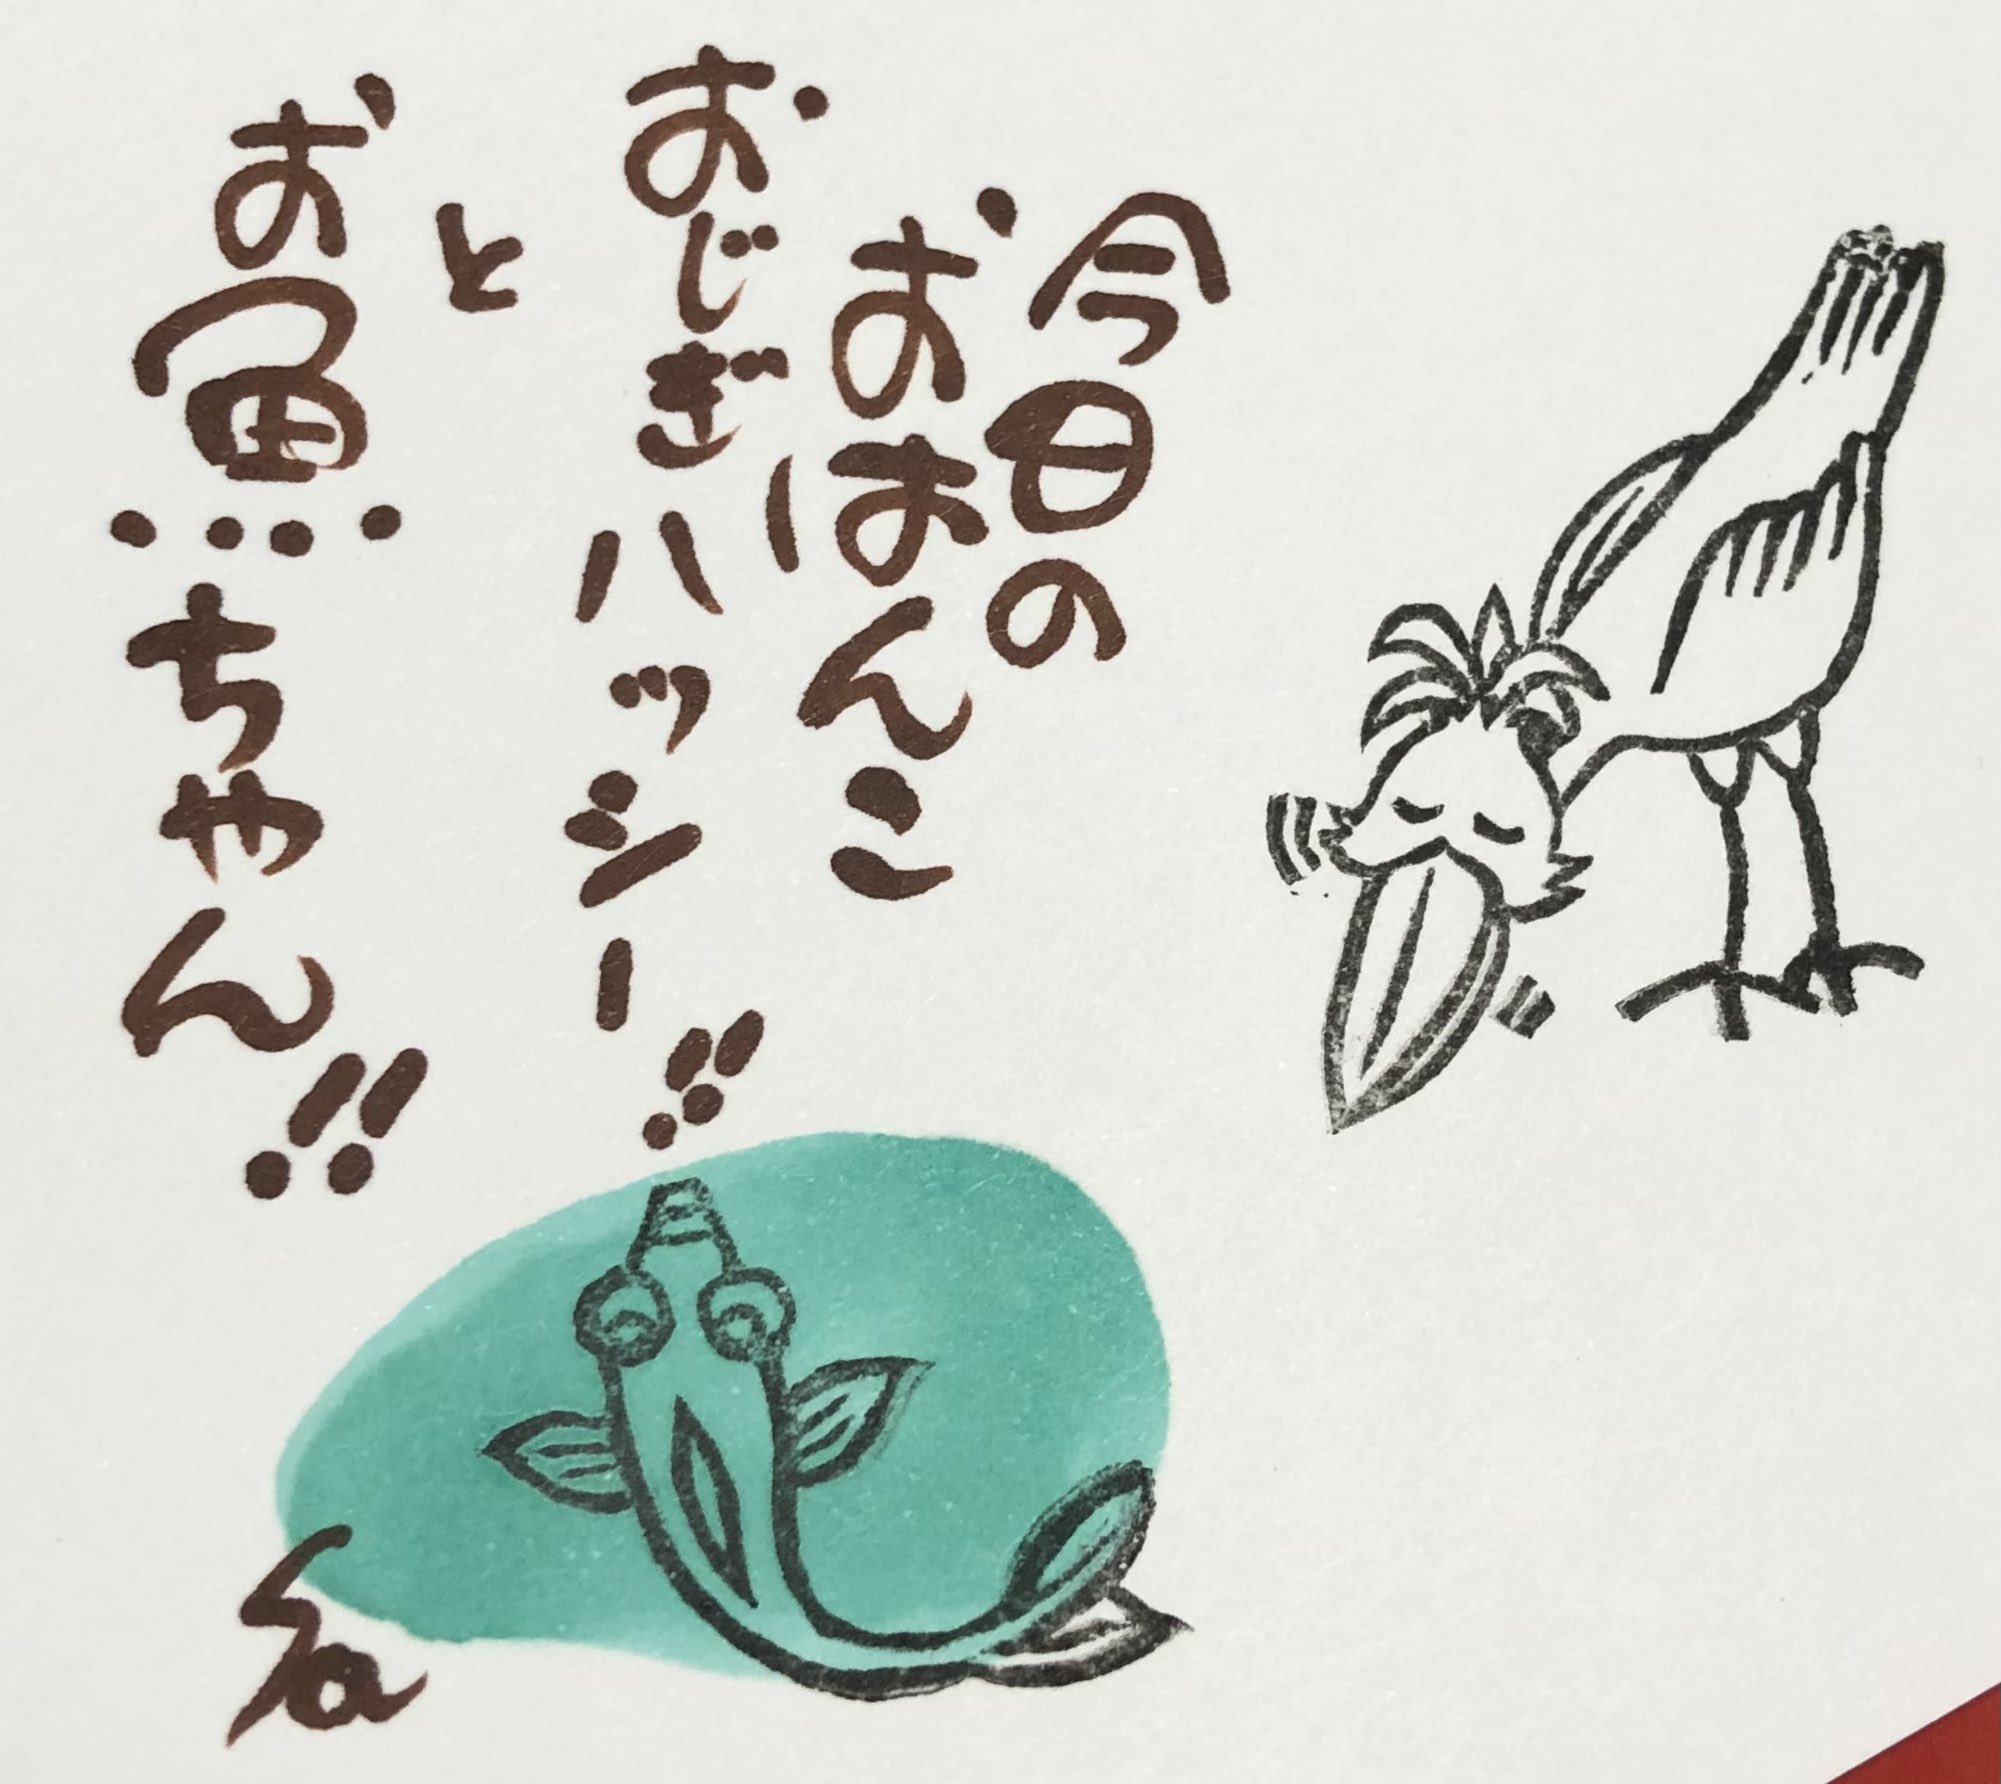 今日の
おはんこ
は
おじぎハッシー!!
と
お魚ちゃん!!